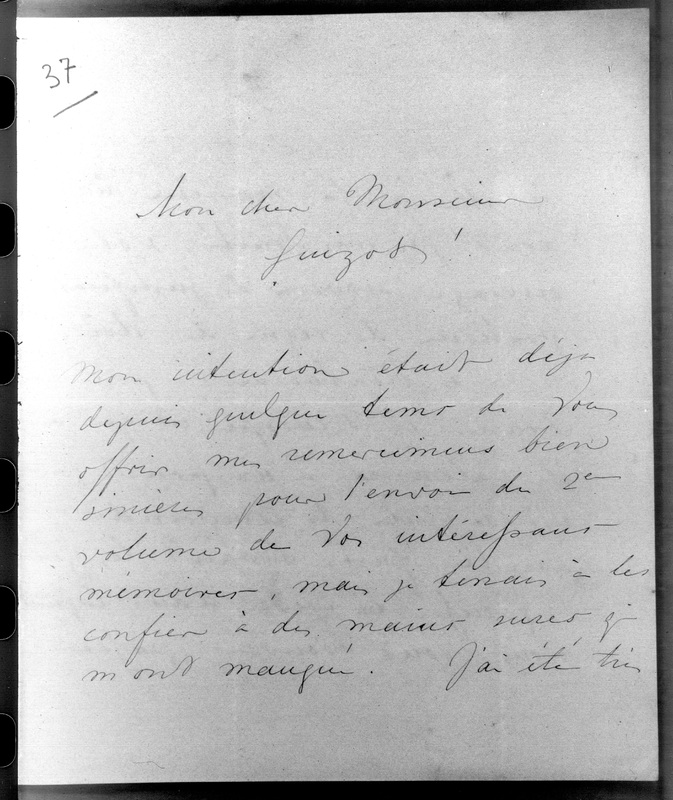 37
Mon cher Monsieur
Guizot !
Mon intention était déja
depuis quelque tems de Vous
offrir mes remercimens bien
sincères pour l'envoi du 2en
volume de Vos intéressans
mémoires, mais je tenais à les
confier à des mains sures qi
m'ont manqué. J'ai été très